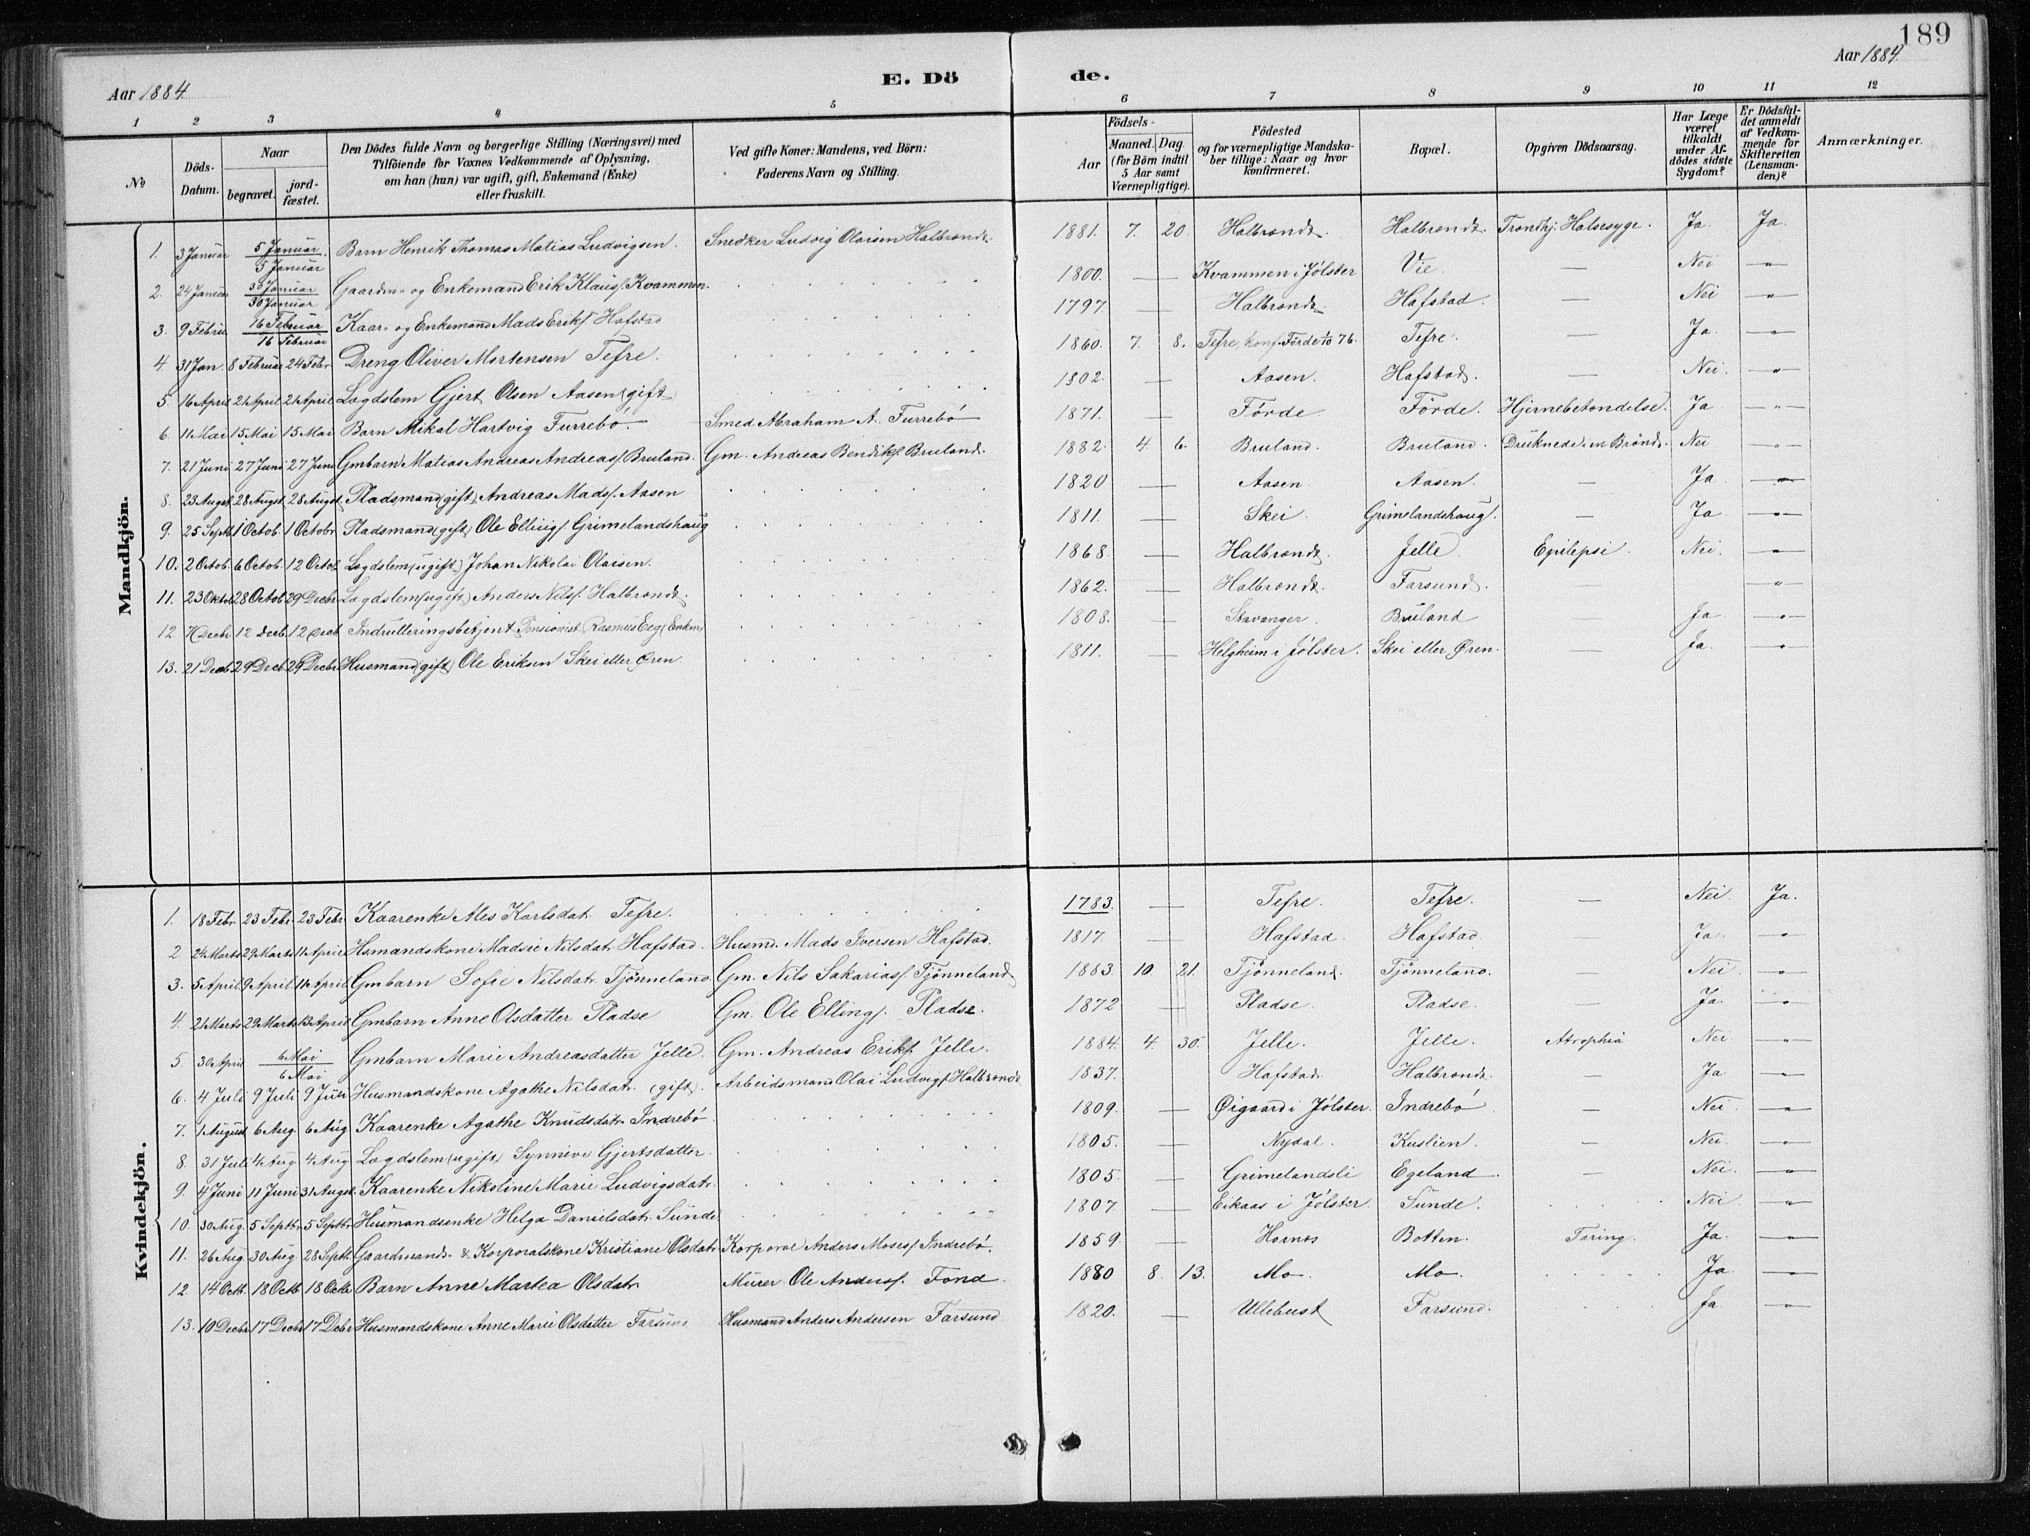 189
Aar 1884. E. Dö de. Aar 1884.
1 2 3 4 5 6 7 8 9 10 11 12
No
Döds-Datum.
Naar
begravet. jordfæstet.
Den Dödes fulde Navn og borgerlige Stilling (Næringsvei) med Tilföiende for Voxnes Vedkommende af Oplysning, om han (hun) var ugift, gift, Enkemand (Enke) eller fraskilt.
Ved gifte Koner: Mandens, ved Börn: Faderens Navn og Stilling.
Födsels-
Aar Maaned. Dag. (for Börn indtil 5 Aar samt Værnepligtige).
Födested og for værnepligtige Mandskaber tillige: Naar og hvor konfirmeret.
Bopæl.
Opgiven Dödsaarsag.
Har Læge været tilkaldt under Afdödes sidste Sygdom?
Er Dödsfaldet anmeldt af Vedkommende for Skifteretten (Lensmanden)?
Anmærkninger.
Mandkjön.
1. 3 Januar 5 Januar. 5 Januar Barn Henrik Thomas Matias Ludvigsen. Snedker Ludvig Olaisen Halbrendt. 1881. 7. 20. Halbrendt. Halbrendt. Trondhj: Halsesyge. Ja Ja.
2. 24 Januar 30 Januar 30 Januar Gaardm- og Enkemand Erik Klaus. Kvammen. 1800. — Kvammen i Jølster Vie. — Nei -"-
3. 9 Februar 16 Februar 16 Februar Kaar- og Enkemand Mads Eriks. Hafstad 1797. — Halbrendt Hafstad. — Nei -"-
4. 31 Jan. 8 Februar 24 Febr. Dreng Oliver Mortensen Tefre. 1860. 7. 8. Tefre, konf. Förde 1/10 76. Tefre. — Ja. -"-
5. 16 April 21 April 21 April Lægdslem Gjert Olsen Aasen (gift) 1802. — Aasen. Hafstad. — Nei. -"-
6. 11 Mai 15 Mai 15 Mai Barn Mikal Hartvig Furrebö. Smed Abraham A. Furrebö 1871. — Förde Förde. Hjernebetendelse. Ja -"-
7. 21 Juni 27 Juni 27 Juni Gmbarn Matias Andreas Andreas. Bruland. Gm. Andreas Bendiks. Bruland. 1882. 4 6. Bruland. Bruland. Druknede i en Brönd. Nei -"-
8. 23 Augst 28 Augst 28 Augst. Pladsmand (gift) Andreas Mads. Aasen 1820 — Aasen. Aasen. — Ja -"-
9. 25 Septb. 1 Octob. 1 Octobr. Pladsmand (gift) Ole Ellings. Grimelandshaug 1811. — Skei. Grimelandshaug. — Ja -"-
10. 2 Octob. 6 Octob. 12 Octob. Lægdslem (ugift) Johan Nikolai Olaisen. 1868. — Halbrendt. Jelle. Epilepsi. Nei. -"-
11. 23 Oktob. 28 Octob. 29 Decbr. Lægdslem (ugift) Anders Nils. Halbrendt. 1862. — Halbrendt. Farsund. — -"-
12 7 Decbr. 12 Decb. 12 Decb. Indrulleringsbetjent Pensionist Rasmus Eeg (Enkm) 1808. — Stavanger. Bruland — Ja -"-
13. 21 Decb. 29 Decb. 29 Decbr. Husmand (gift) Ole Eriksen Skei eller Øren. 1811. — Helgheim i Jølster. Skei eller Øren. — Ja. -"-
Kvindekjön.
1. 18 Febr. 23 Febr. 23 Febr. Kaarenke Ales Karlsdatr. Tefre. 1783. — Tefre. Tefre. — Nei. Ja.
2 24 Marts 29 Marts 14 April Hsmandskone Madsie Nilsdatr. Hafstad. Husmd. Mads Iversen Hafstad. 1817. — Hafstad. Hafstad. — Ja -"-
3. 5 April 9 April 14 April Gmbarn Sofie Nilsdatr. Tjönneland. Gm. Nils Sakarias. Tjönneland 1883. 10. 21. Tjönneland. Tjönneland. — Nei. -"-
4. 21 Marts 29 Marts 13 April Gmbarn Anne Olsdatter Pladse Gm. Ole Ellings. Pladse. 1872 — Pladse. Pladse. — Ja. -"-
5 30 April 6 Mai 6 Mai Gmbarn Marie Andreasdatter Jelle. Gm. Andreas Eriks. Jelle. 1884. 4. 30. Jelle. Jelle. Atrophia Nei -"-
6. 4 Juli 9 Juli 9 Juli Husmandskone Agathe Nilsdatr. (gift). Arbeidsmand Olai Ludvigs. Halbrendt 1837. — Hafstad. Halbrendt. — Ja -"-
7. 1 August 6 Aug. 6 Aug. Kaarenke Agathe Knudsdatr. Indrebö 1809. — Øigaard i Jølster. Indrebö — Nei. -"-
8. 31 Juli 4 Aug 4 Aug Lægdslem (ugift) Synneve Gjertsdatter. 1805. — Nydal. Kuslien. — Nei. -"-
9. 4 Juni 11 Juni 31 Augst. Kaarenke Nikoline Marie Ludvigsdatr. 1805. — Grimelandsli Egeland — Nei. -"-
10. 30 Aug. 5 Septbr. 5 Septbr. Husmandsenke Helga Danielsdatr. Sunde 1807. — Eikaas i Jølster. Sunde. Nei. -"-
11. 26 Aug. 30 Aug 28 Septb. Gaardmands- & Korporalskone Kristiane Olsdatr. Korporal Anders Moses. Indrebö. 1859 — Hornes Botten. Tæring. Ja. -"-
12 14 Octb. 18 Octb 18 Octb. Barn Anne Martea Olsdatr. Murer Ole Anders. Fond. 1880 8. 13. Mo. Mo. Ja -"-
13. 10 Decbr. 17 Decbr 17 Debr. Husmandskone Anne Marie Olsdatter Farsund Husmand Anders Andersen Farsund. 1820. — Ullebust Farsund. Ja. -"-